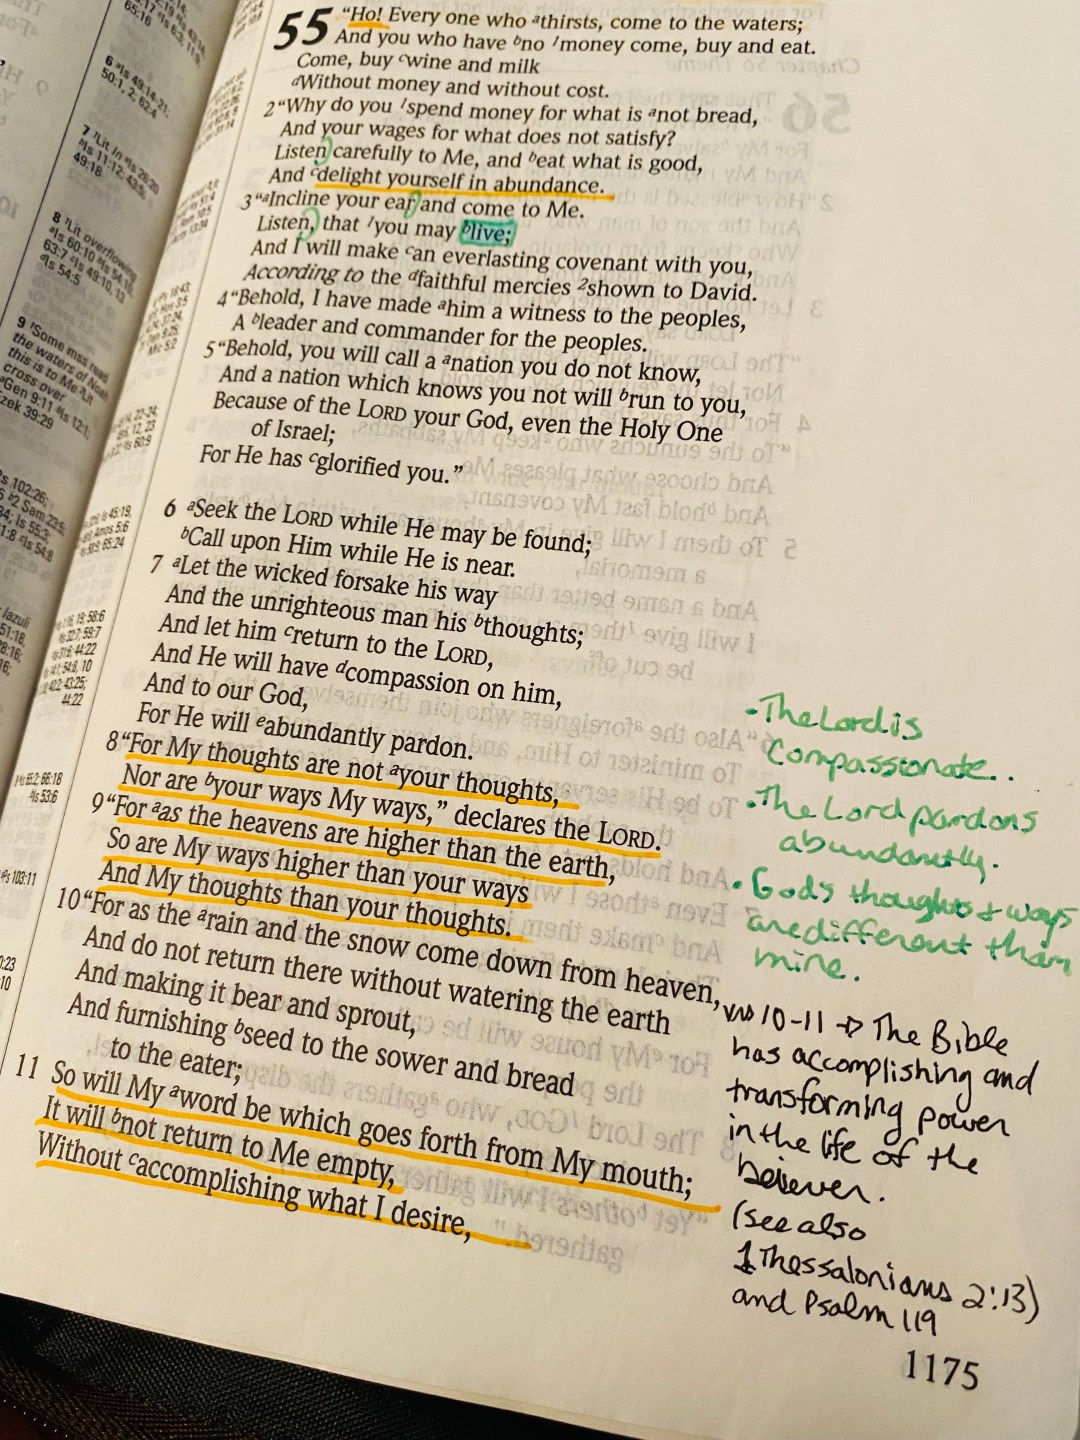 55 "Ho! Every one who ᵃthirsts, come to the waters;
And you who have ᵇno ˡmoney come, buy and eat.
Come, buy ᶜwine and milk
ᵈWithout money and without cost.
2 "Why do you ˡspend money for what is ᵃnot bread,
And your wages for what does not satisfy?
Listen carefully to Me, and ᵇeat what is good,
And ᶜdelight yourself in abundance.
3 "ᵃIncline your ear and come to Me.
Listen, that ˡyou may ᵇlive;
And I will make ᶜan everlasting covenant with you,
According to the ᵈfaithful mercies ²shown to David.
4 "Behold, I have made ᵃhim a witness to the peoples,
A ᵇleader and commander for the peoples.
5 "Behold, you will call a ᵃnation you do not know,
And a nation which knows you not will ᵇrun to you,
Because of the LORD your God, even the Holy One
of Israel;
For He has ᶜglorified you."
6 ᵃSeek the LORD while He may be found;
ᵇCall upon Him while He is near.
7 ᵃLet the wicked forsake his way
And the unrighteous man his ᵇthoughts;
And let him ᶜreturn to the LORD,
And He will have ᵈcompassion on him,
And to our God,
For He will ᵉabundantly pardon.
8 "For My thoughts are not ᵃyour thoughts,
Nor are ᵇyour ways My ways," declares the LORD.
9 "For ᵃas the heavens are higher than the earth,
So are My ways higher than your ways
And My thoughts than your thoughts.
10 "For as the ᵃrain and the snow come down from heaven,
And do not return there without watering the earth
And making it bear and sprout,
And furnishing ᵇseed to the sower and bread
to the eater;
11 So will My ᵃword be which goes forth from My mouth;
It will ᵇnot return to Me empty,
Without ᶜaccomplishing what I desire,
• The Lord is
Compassionate..
• The Lord pardons
abundantly.
• God's thoughts & ways
are different than
mine.
vvs 10-11 → The Bible
has accomplishing and
transforming power
in the life of the
believer.
(see also
1 Thessalonians 2:13)
and Psalm 119
1175
65:16
6 ᵃIs 49:14-21;
50:1, 2; 62:4
7 ˡLit In ᵃIs 26:20
ᵇIs 11:12; 43:5;
49:18
8 ˡLit overflowing
ᵃIs 60:10 ᵇIs 54:10;
63:7 ᶜIs 49:10, 13
ᵈIs 54:5
9 ˡSome mss read
the waters of Noah
this is to Me ²Lit
cross over
ᵃGen 9:11 ᵇIs 12:1;
zek 39:29